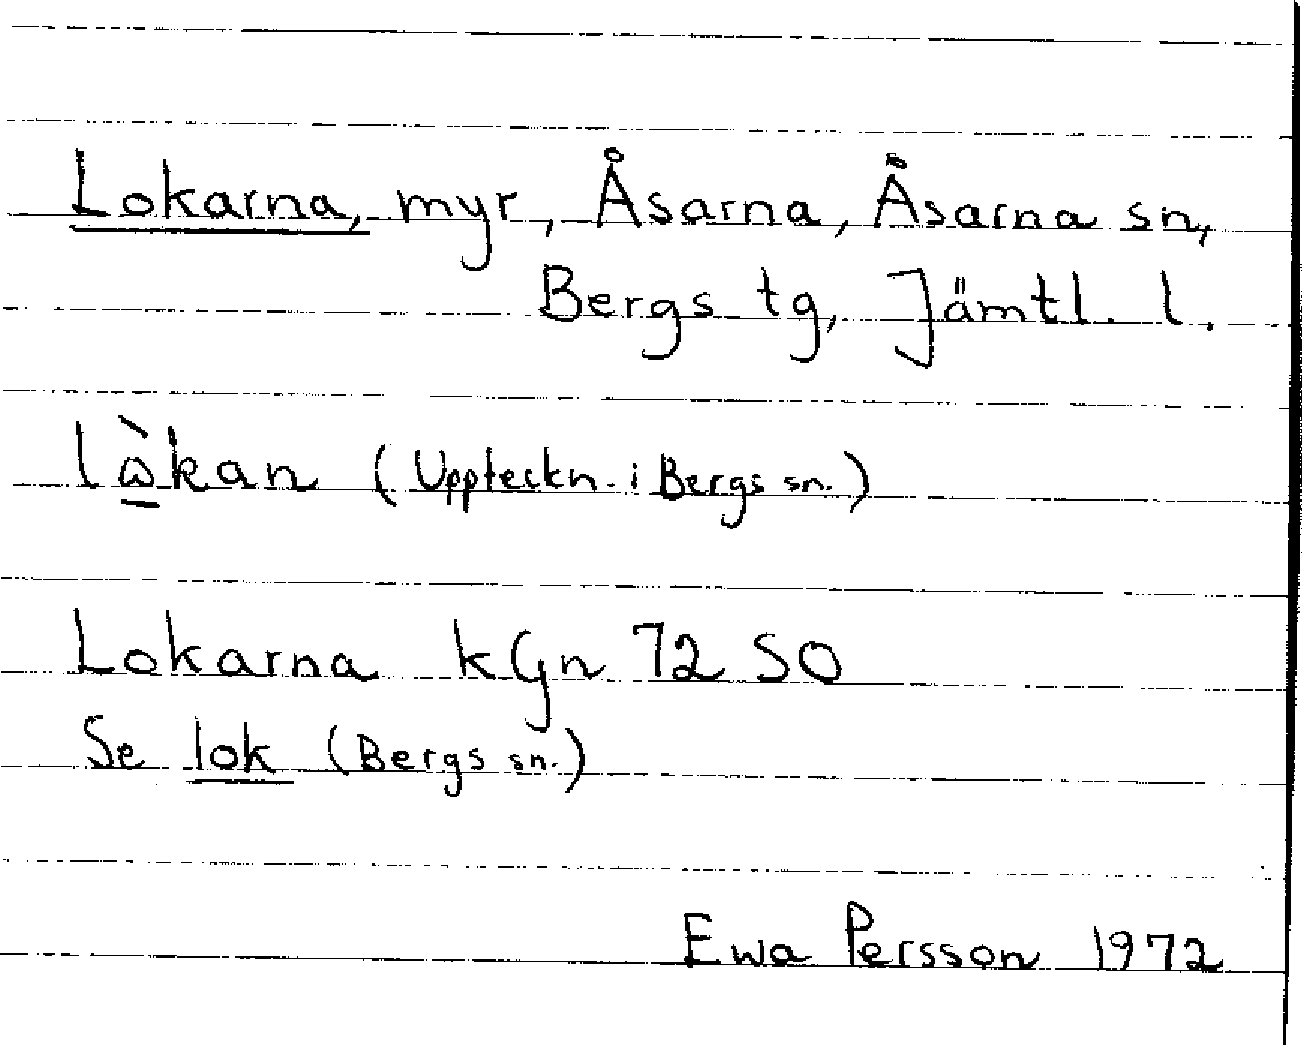 Lokarna, myr, Åsarna, Åsarna sn,
Bergs tg, Jämtl. l.
lὼ̱kan (Uppteckn. i Bergs sn.)
Lokarna kGn 72 SO
Se lok (Bergs sn.)
Ewa Persson 1972